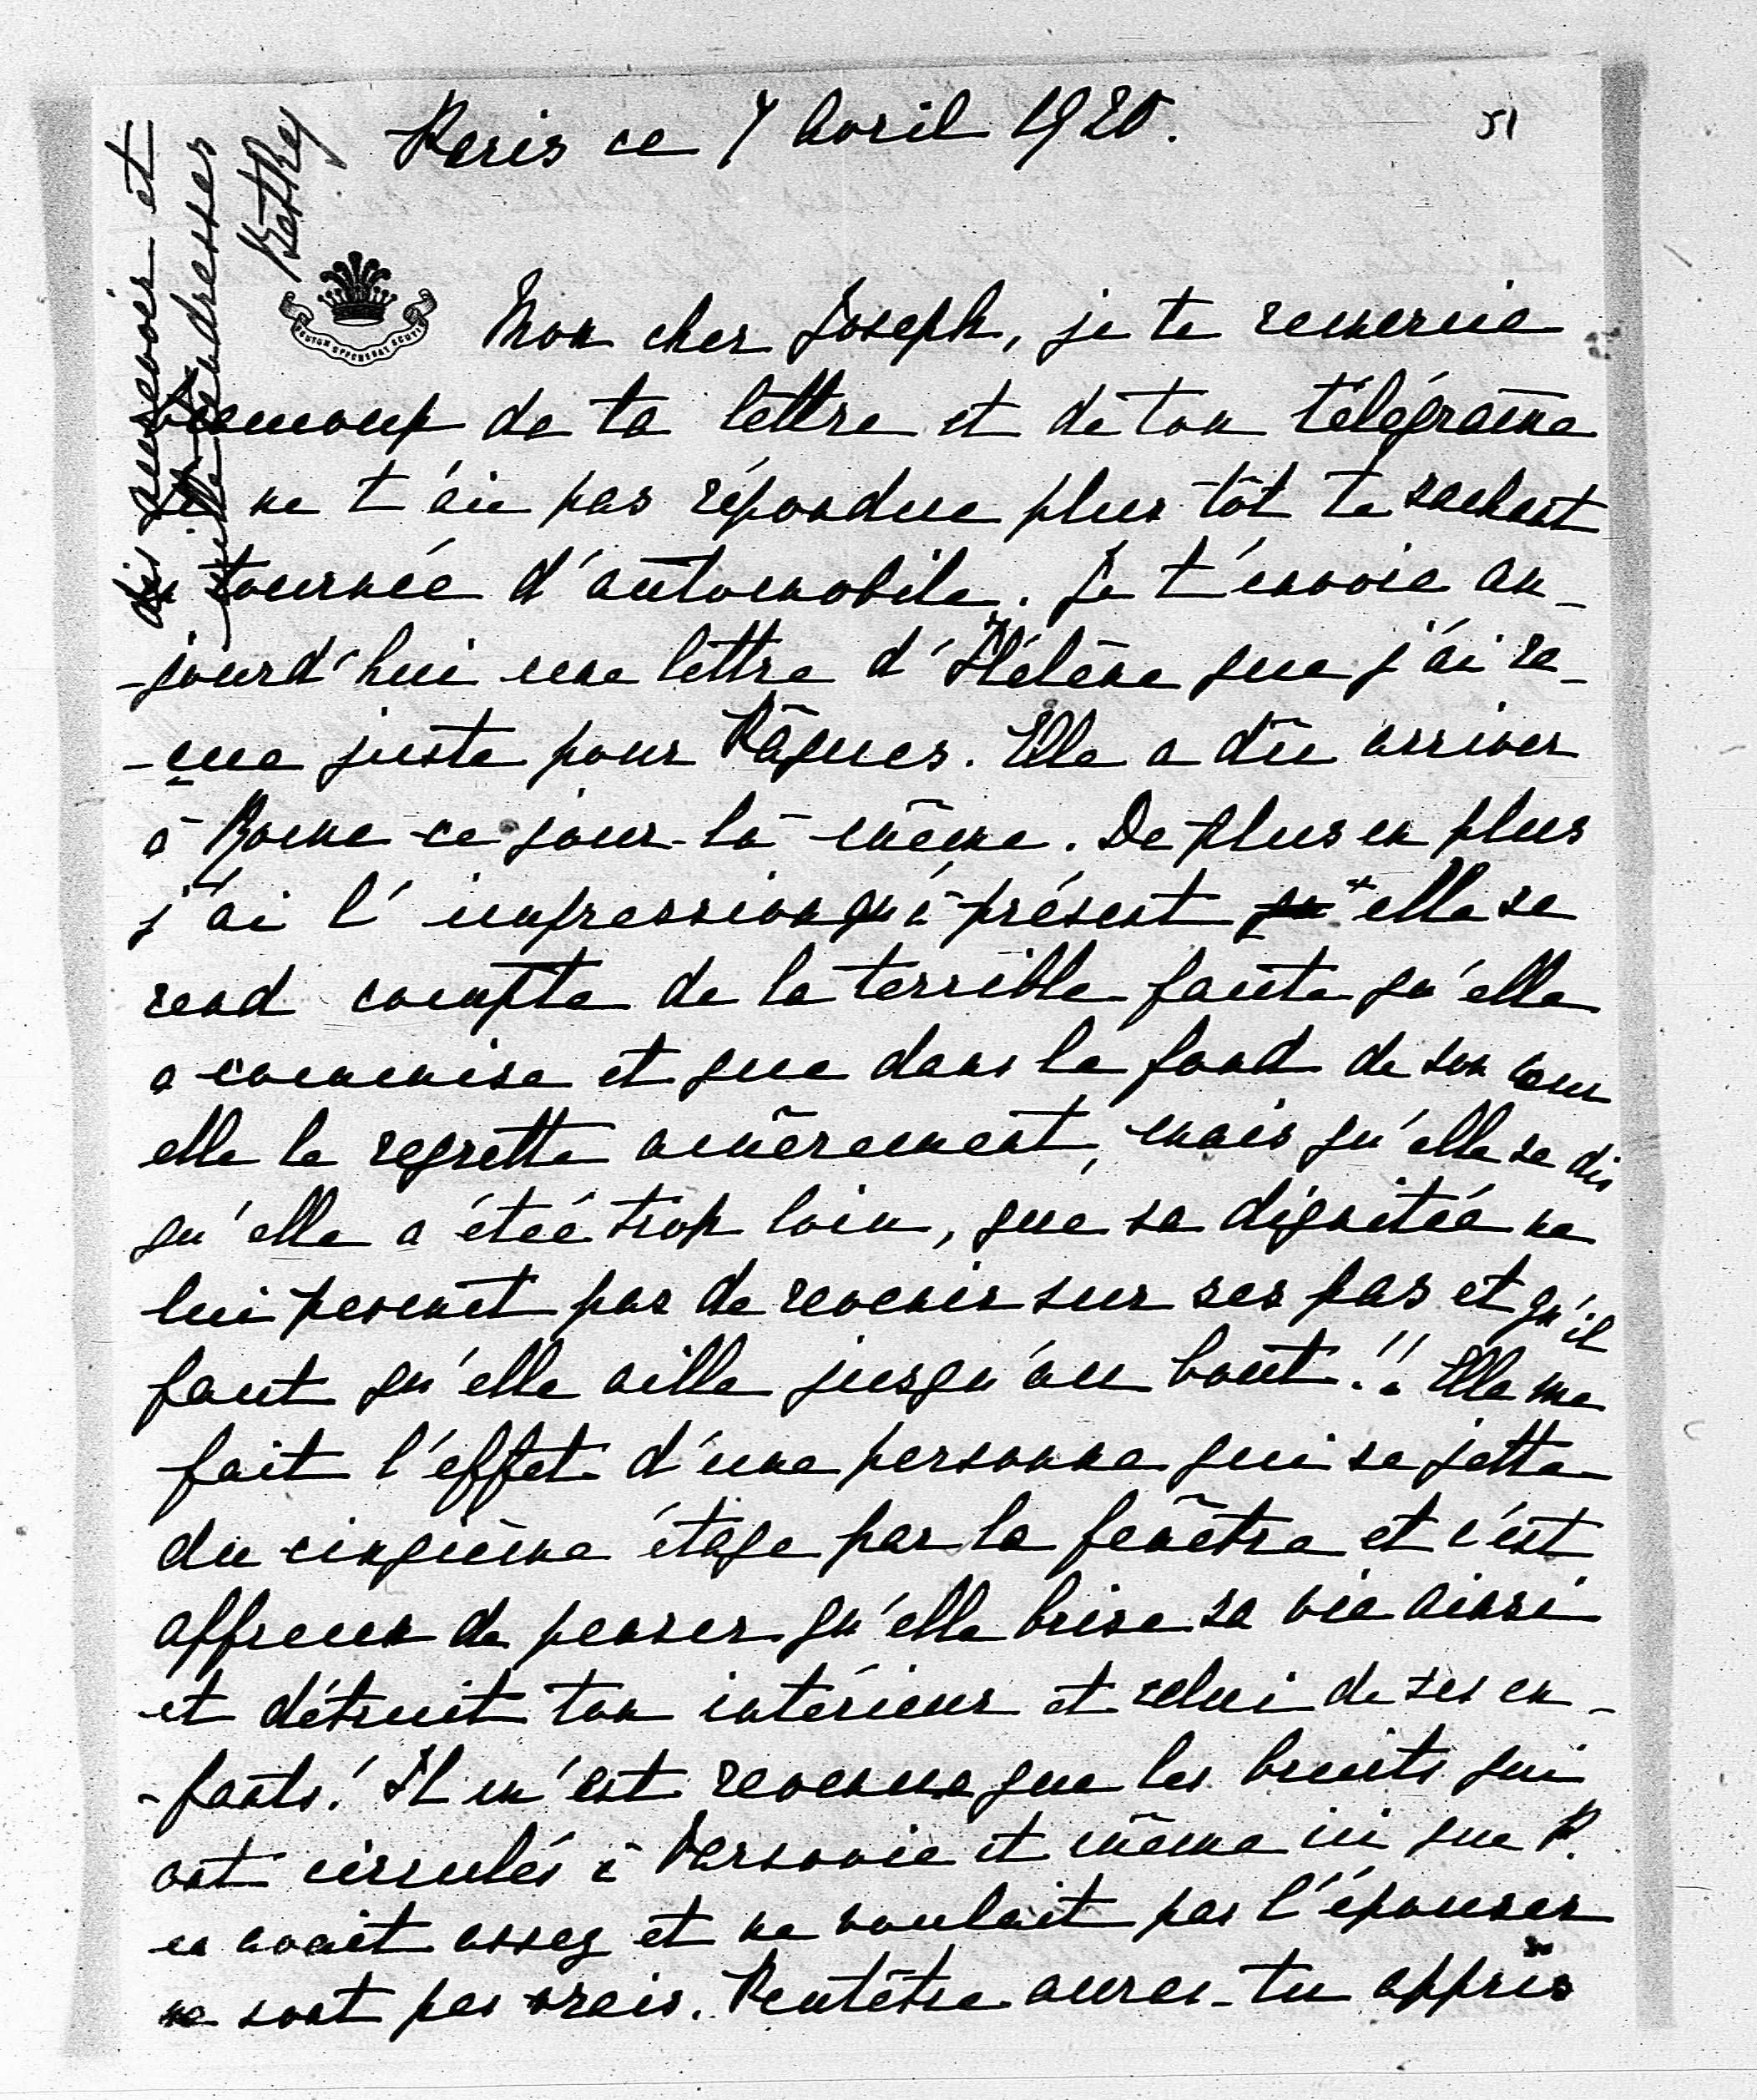 Paris ce 7 Avril 1920.
51
Mon cher Joseph, je te remercie
beaucoup de ta lettre et de ton télégrame
Je ne t'aie pas répondue plus tôt te sachant
en tournée d'automobile. Je t'envoie au-
-jourd'hui une lettre d'Hélène que j'ai re-
-çue juste pour Pâques. Elle a dû arriver
à Rome ce jour-là même. De plus en plus
j'ai l'impression qu'à présent elle se
rend compte de la terrible faute qu'elle
a commise et que dans le fond de son cœur
elle le regrette amèrement, mais qu'elle se dis
qu'elle a étée trop loin, que sa dignitée ne
lui permet pas de revenir sur ses pas et qu'il
faut qu'elle aille jusqu'au bout!! Elle me
fait l'effet d'une personne qui se jette
du cinquième étage par la fenêtre et c'est
affreux de penser qu'elle brise sa vie ainsi
et détruit ton intérieur et celui de ses en-
-fants! Il m'est revenue que les bruits qui
ont circulés à Varsovie et même ici que P.
en avait assez et ne voulait pas l'épouser
ne sont pas vrais. Peutêtre auras-tu appris
aurevoir et
mille tendresses
Bethey